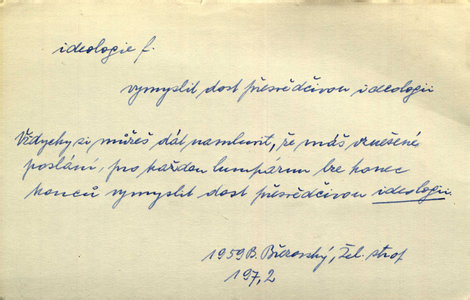 ideologie f.
vymyslit dost přesvědčivou ideologii
Vždycky si můžeš dát namluvit, že máš vznešené
poslání, pro každou lumpárnu lze konec
konců vymyslit dost přesvědčivou ideologii.
1959 B. Březovský, Žel. strop
197,2